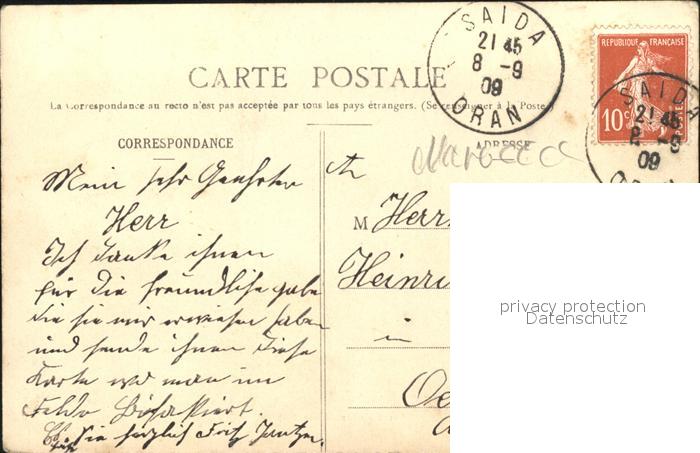 SAIDA
21 45
8 -9
09
ORAN
REPUBLIQUE FRANÇAISE
10c
POSTES
SAIDA
21 45
09
CARTE POSTALE
La Correspondance au recto n'est pas acceptée par tous les pays étrangers. (Se renseigner à la Poste)
CORRESPONDANCE
ADRESSE
Mein sehr Geehrter
Herr
Ich danke ihnen
für die freundliche gabe
die sie mir erwiesen haben
und sende ihnen diese
Karte
Felde
Sie herzlich Fritz
M Herr
Heinri
in
Oe
privacy protection
Datenschutz